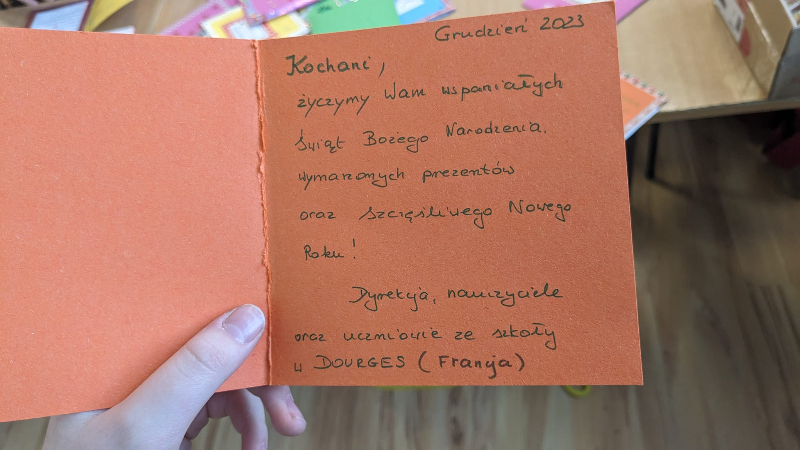 Grudzień 2023
Kochani,
życzymy Wam wspaniałych
Świąt Bożego Narodzenia,
wymarzonych prezentów
oraz szczęśliwego Nowego
Roku!
Dyrekcja, nauczyciele
oraz uczniowie ze szkoły
w DOURGES (Francja)